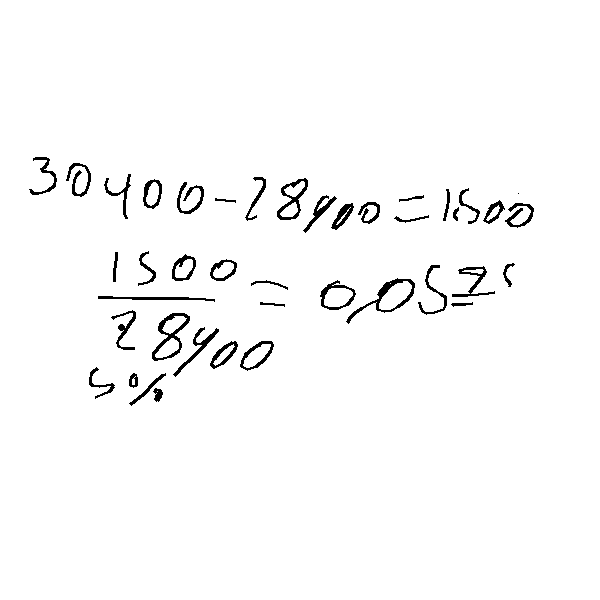 30400-28900=1500
1500
28900
=0,0525
5%